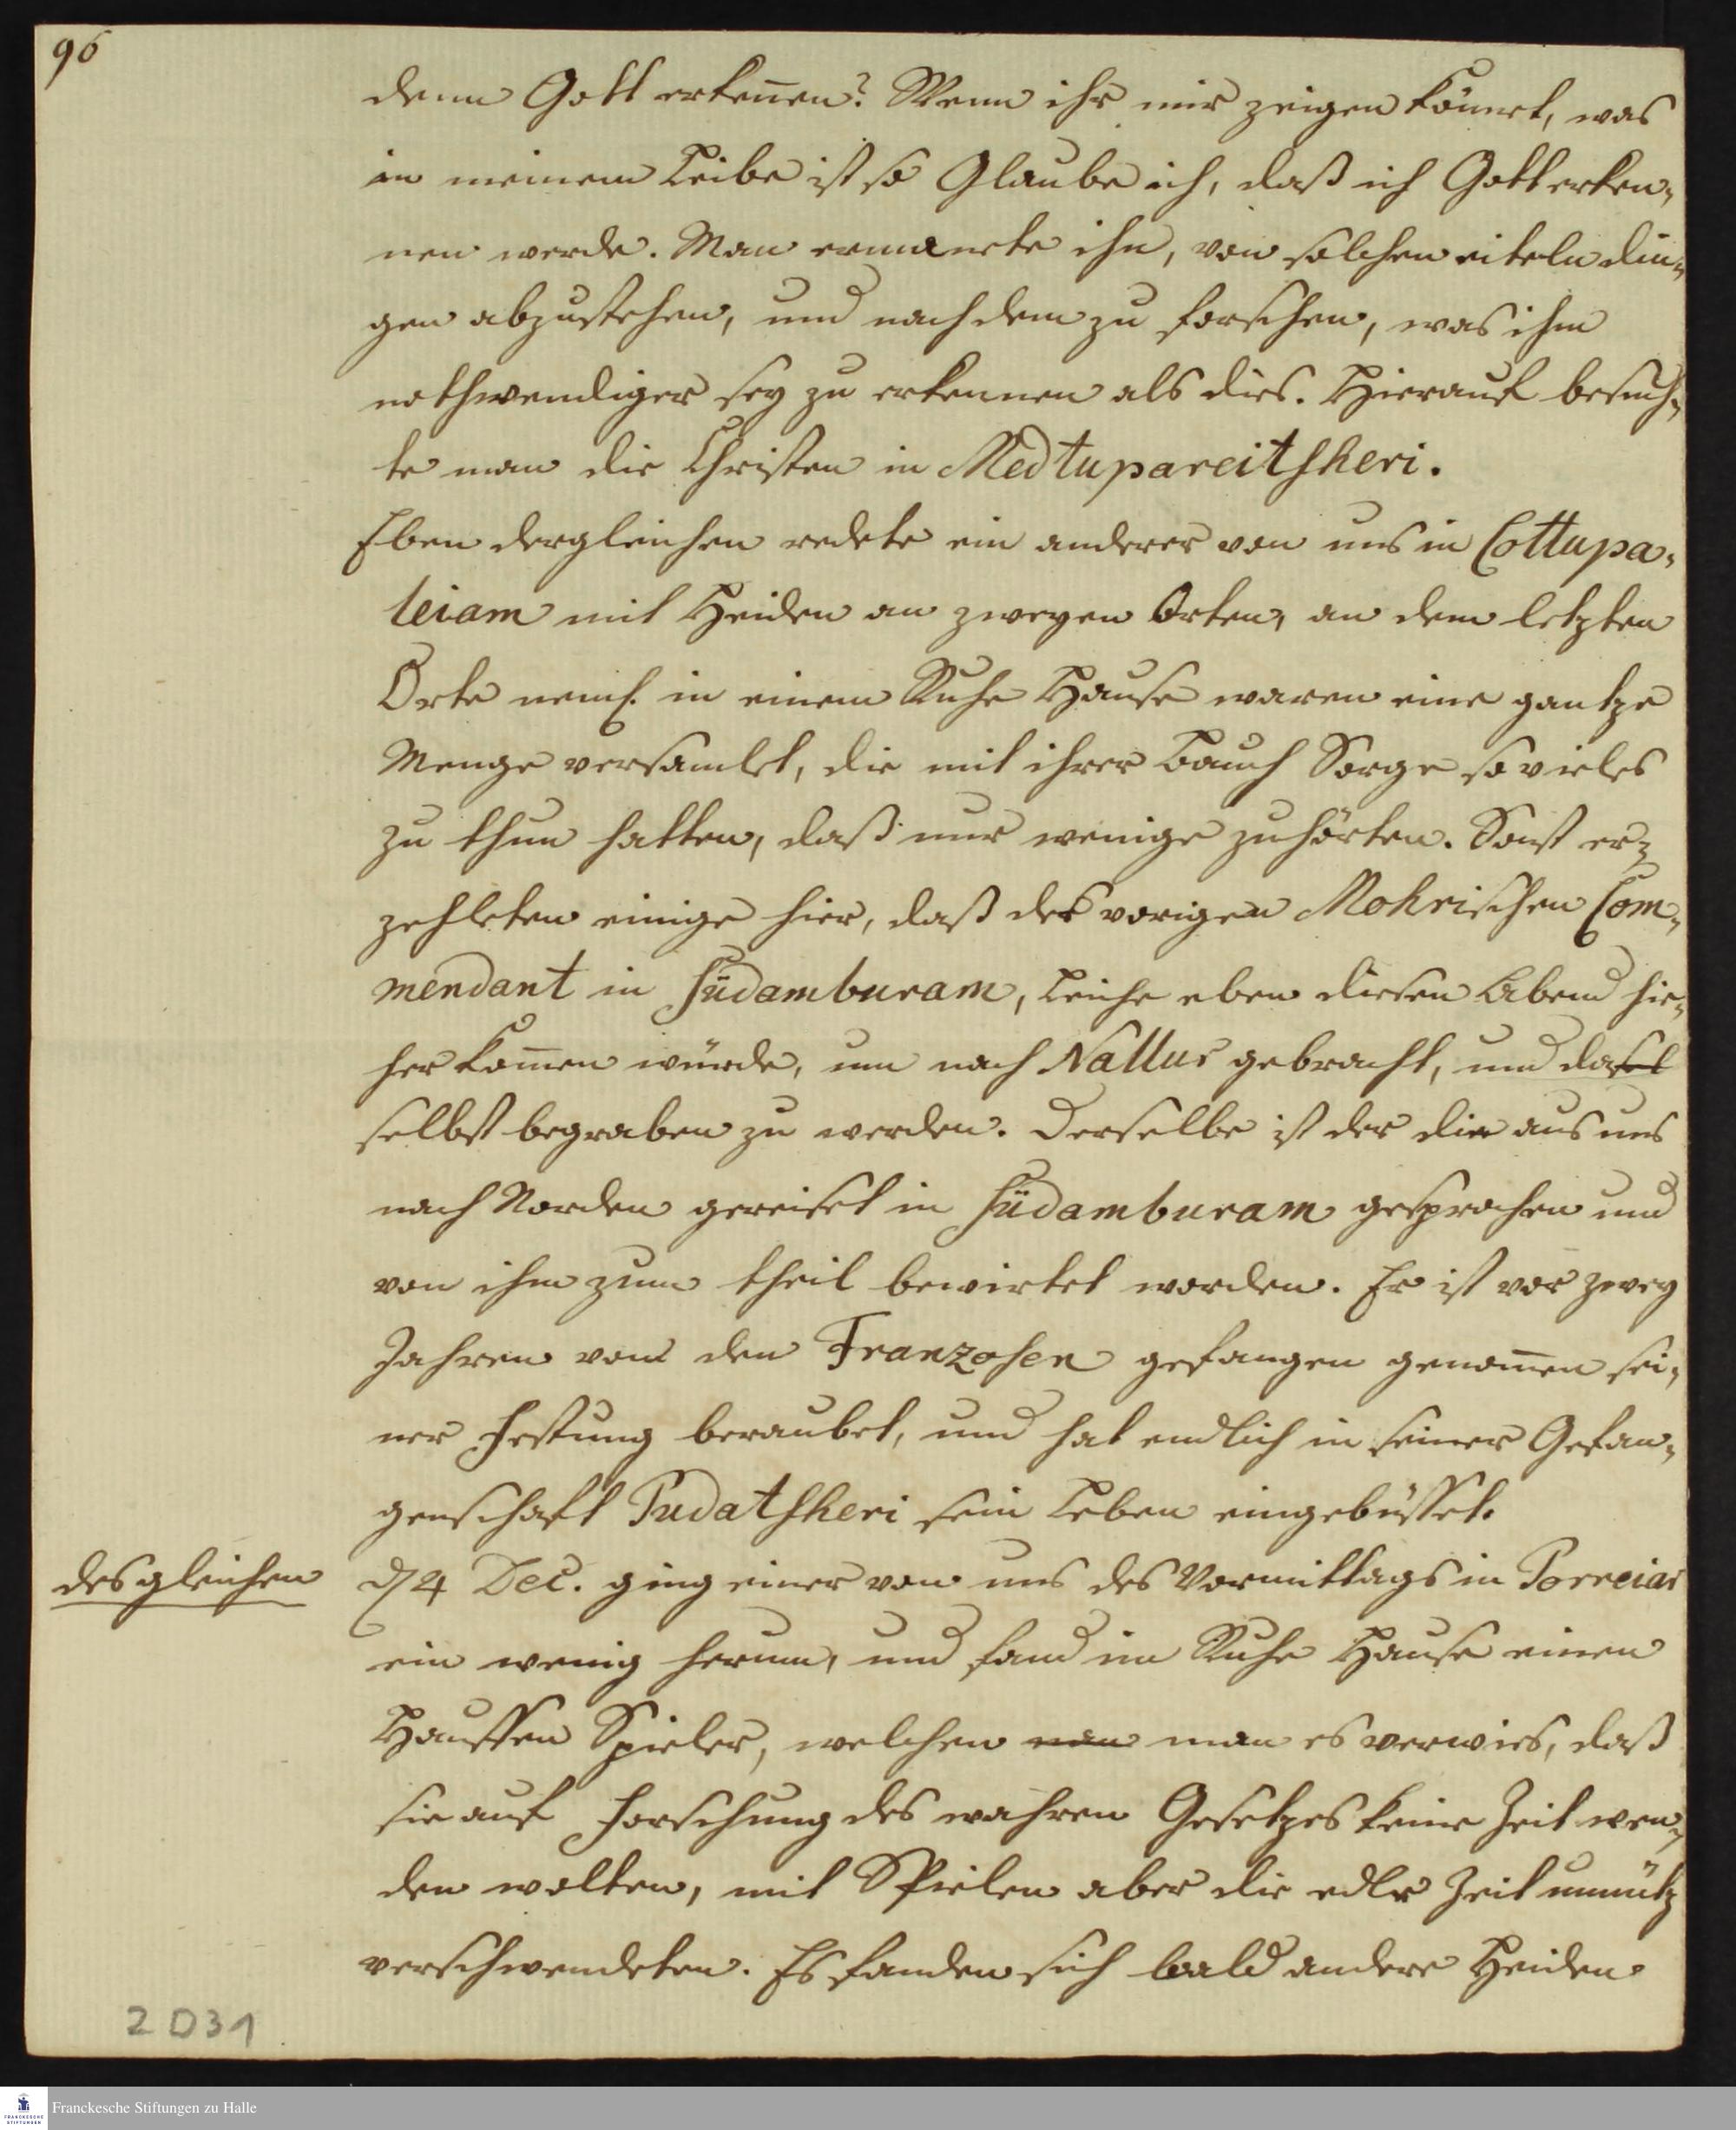 96
denn Gott erkeñen? Wenn ihr mir zeigen könnet, was
in meinem Leibe ist so Glaube ich, daß ich Gott erken-
nen werde. Man ermanete ihn, von solchen eiteln din-
gen abzustehen, und nach dem zu forschen, was ihm
nothwendiger sey zu erkennen als dies. Hierauf besuch-
te man die Christen in Medtupareitsheri.
Eben dergleichen redete ein anderer von uns in Cottupa-
leiam mit Heiden an zweyen Orten, an dem letzten
Orte neml. in einem Ruhe Hause waren eine gantze
Menge versamlet, die mit ihrer Bauch Sorge so vieles
zu thun hatten, daß nur wenige zuhörten. Sonst er-
zehleten einige hier, daß des vorigen Mohrischen Com-
mendant in Südamburam, Leiche eben diesen Abend hie-
her kom̃en würde, um nach Nallur gebracht, und dasel
selbst begraben zu werden. Derselbe ist der die aus uns
nach Norden gereiset in Südamburam gesprochen und
von ihm zum theil bewirtet worden. Er ist vor zwey
Jahren von den Franzosen gefangen genom̃en sei-
ner Festung beraubet, und hat endlich in seiner Gefan-
genschaft Pudatsheri sein Leben eingebüsset.
desgleichen
d 4 Dec. ging einer von uns des Vormittags in Porreiar
ein wenig herum, und fand im Ruhe Hause einen
Hauffen Spieler, welchen man man es verwies, daß
sie auf Forschung des wahren Gesetzes keine Zeit wen-
den wolten, mit Spielen aber die edle Zeit unnütz
verschwendeten. Es fanden sich bald andere Heiden
2 D31
FRANCKESCHE STIFTUNGEN
Franckesche Stiftungen zu Halle